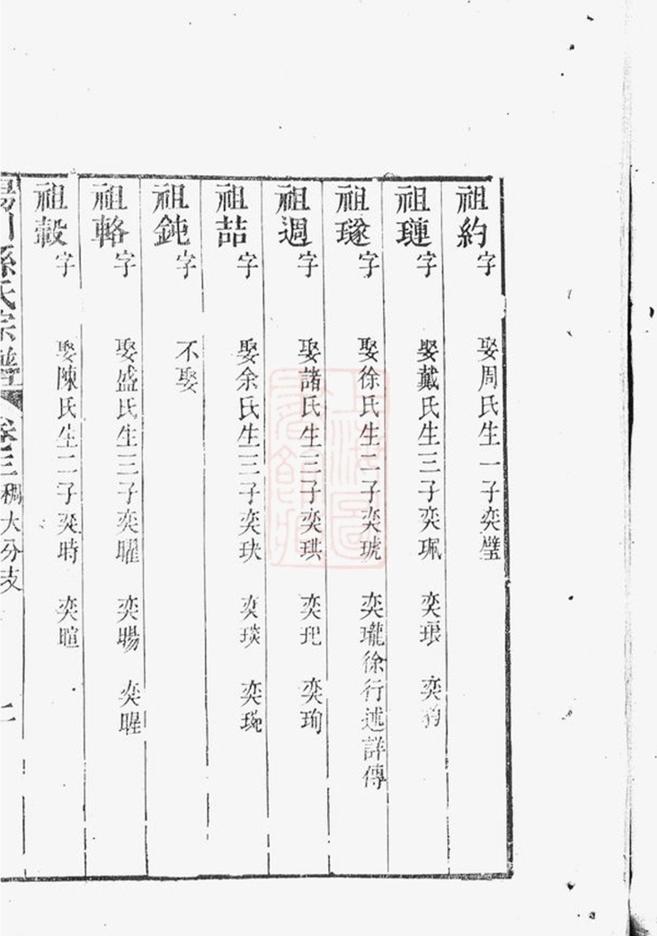 祖約字 娶周氏生一子奕璧
祖璉字 娶戴氏生三子奕珮 奕琅 奕
祖璲字 娶徐氏生二子奕琥 奕瓏徐行述詳傳
祖週字 娶諸氏生三子奕珙 奕玘 奕珣
祖喆字 娶余氏生三子奕玦 奕琰 奕琬
祖鈍字 不娶
祖輅字 娶盛氏生三子奕曜 奕暘 奕
祖轂字 娶陳氏生二子奕時 奕暄
孫氏宗譜 卷三 稠大分支 二